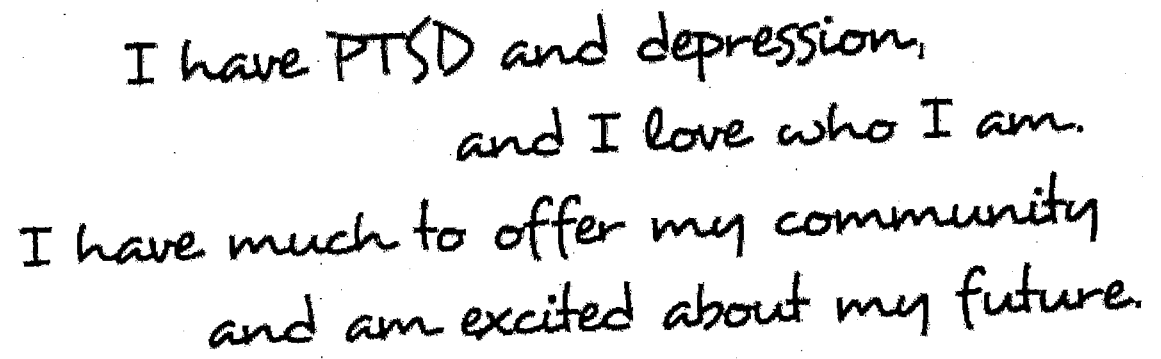 I have PTSD and depression,
and I love who I am.
I have much to offer my community
and am excited about my future.